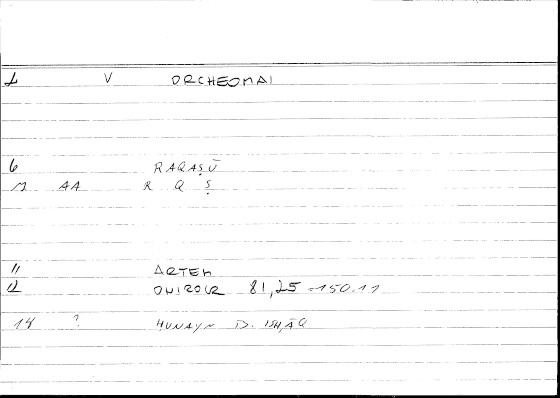 1 V ORCHEOMAI
6 RAQAṢŪ
7 AA R Q Ṣ
11 ARTEM
12 ONIROCR 81,25 = 150.11
14 ? HUNAYN B. ISḤĀQ